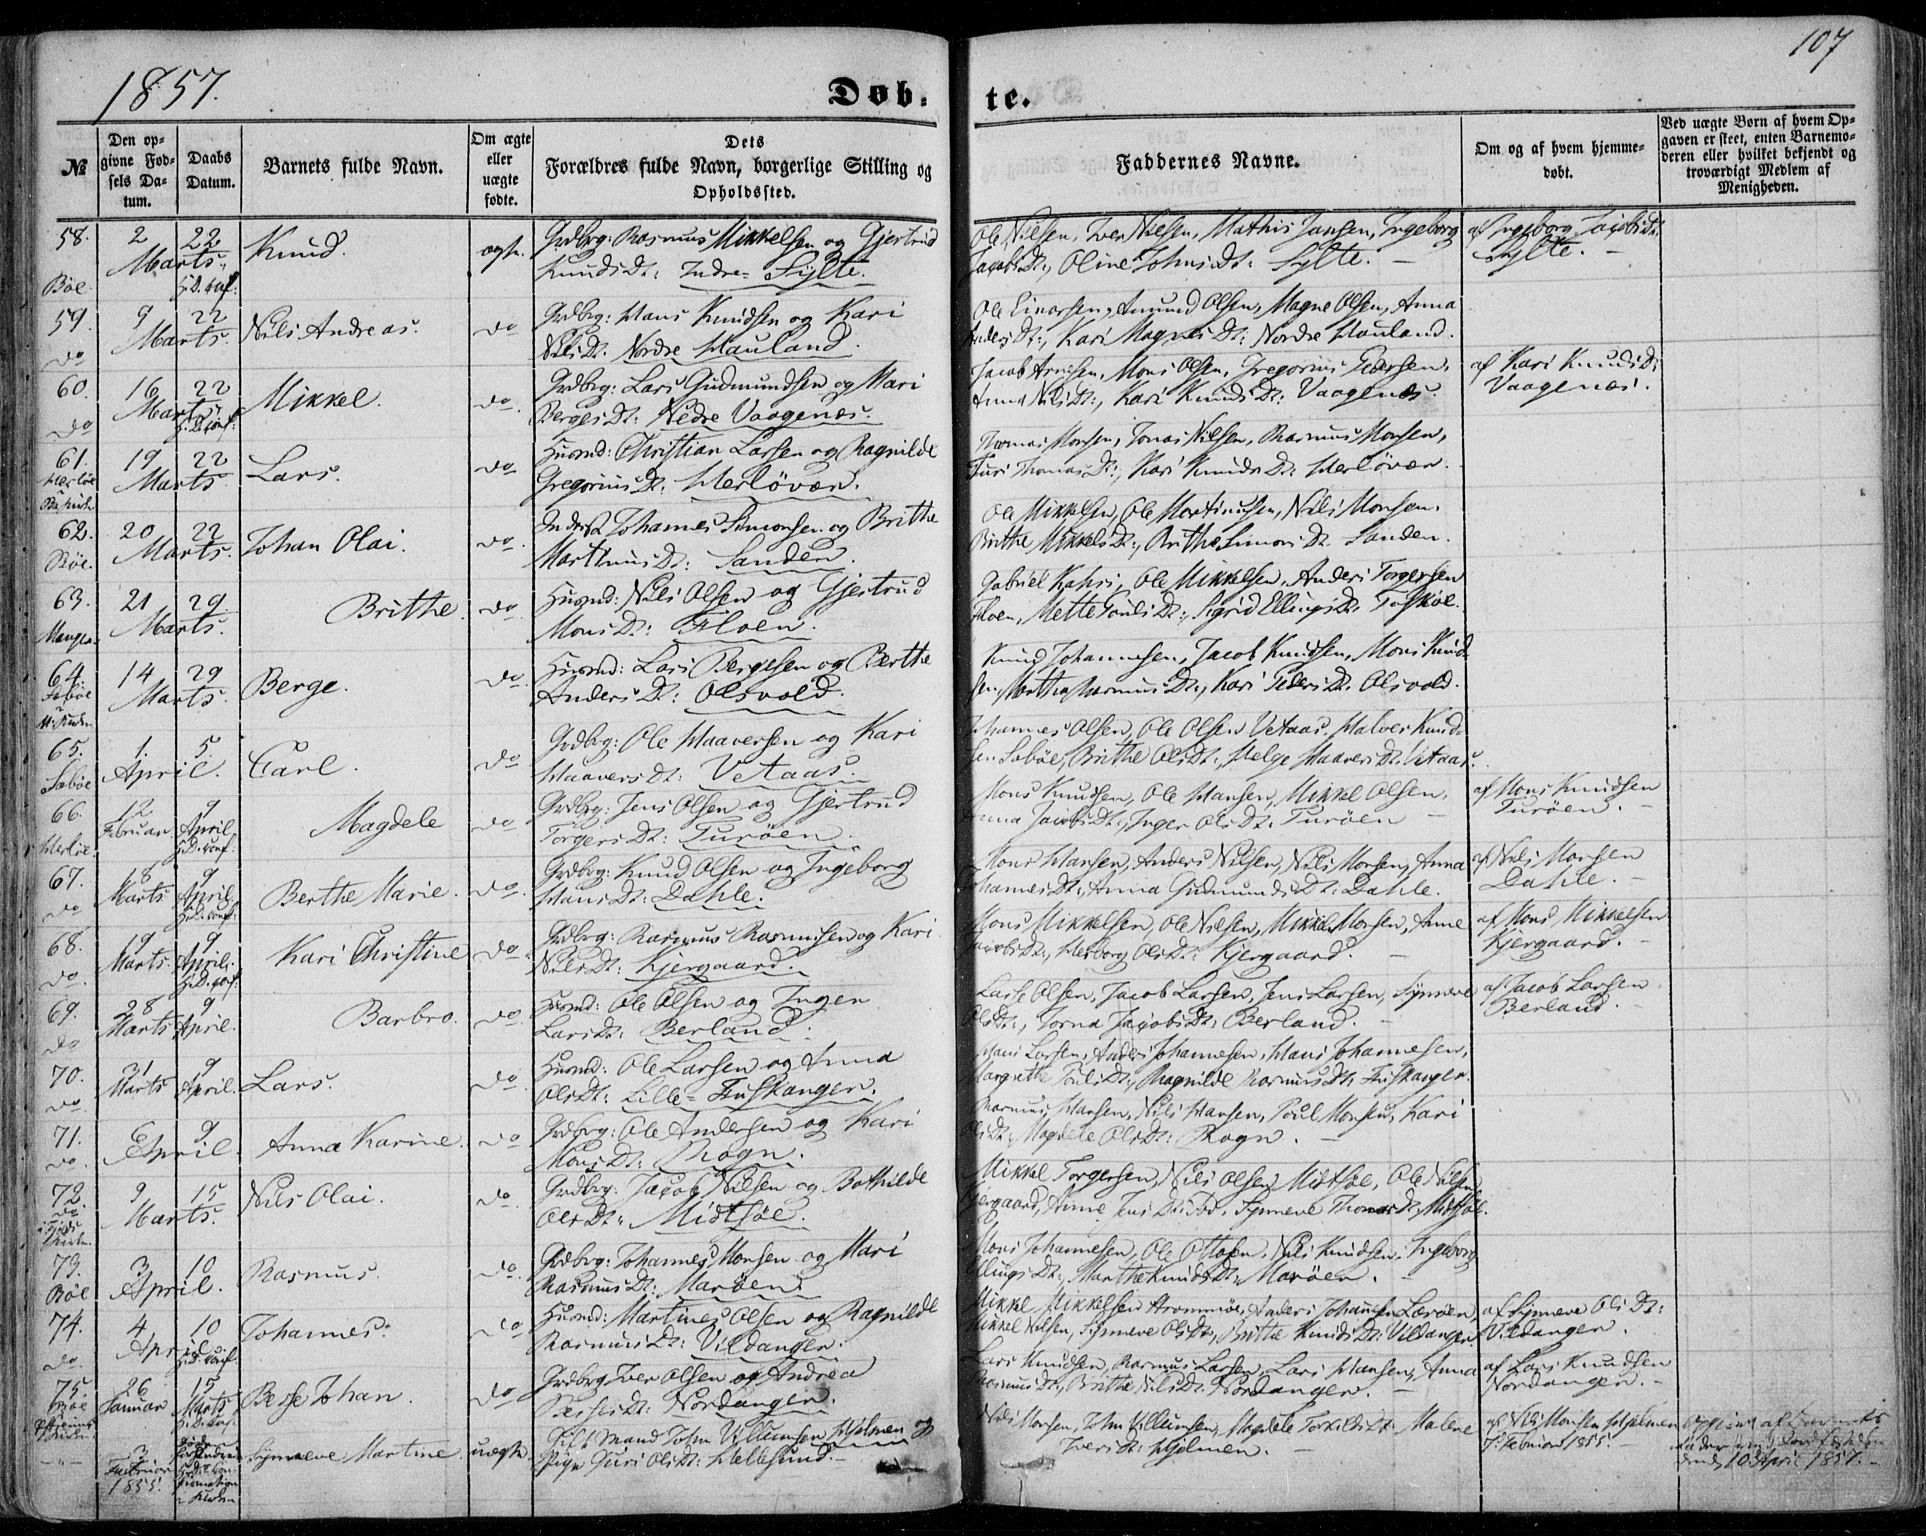 1857.
107
Døb-
te.
№
Den op-
givne Fød-
sels Da-
tum.
Daabs
Datum.
Barnets fulde Navn.
Om ægte
eller
uægte
fødte.
Dets
Forældres fulde Navn, borgerlige Stilling og
Opholdssted.
Faddernes Navne.
Om og af hvem hjemme-
døbt.
Ved uægte Børn af hvem Op-
gaven er skeet, enten Barnemo-
deren eller hvilket bekjendt og
troværdigt Medlem af
Menigheden.
58. 2 22 Knud. ægte. Grdbrg: Rasmus Mikkelsen og Gjertrud
Marts. Knuds Dt: Indre-Sylte.
Bøe
Ole Nilsen, Iver Nilsen, Mathis Jansen, Ingeborg
Jacobs Dt:, Oline Johns Dt: Sylte. -
af Ingeborg Jacobs Dt:
Sylte. -
59. 9 22 Nils Andreas. do Grdbrg: Hans Knudsen og Kari
do Marts. Nils Dt. Nordre Hauland.
Ole Einarsen, Amund Olsen, Magne Olsen, Anna
Anders Dt:, Kari Magnes Dt: Nordre Hauland.
60. 16 22 Mikkel. do. Grdbrg: Lars Gudmundsen og Mari
do Marts. Berges Dt: Nedre Vaagenæs.
Jacob Arnesen, Mons Olsen, Gregorius Pedersen,
Anna Nils Dt:, Kari Knuds Dt: Vaagenæs.
af Kari Knuds Dt:
Vaagenæs.
61. 19 22 Lars. do Husmd: Christian Larsen og Ragnilde
Herløe Marts. Gregorius Dt: Herløvær.
Thomas Monsen, Jonas Nilsen, Rasmus Monsen,
Guri Thomas Dt:, Kari Knuds Dt: Herløvær.
62. 20 22 Johan Olai. do. Inderst Johannes Simonsen og Brithe
Bøe. Marts. Marthinus Dt: Sanden.
Ole Mikkelsen, Ole Martinusen, Nils Monsen,
Brithe Mikkels Dt:, Brithe Simons Dt. Sanden.
63. 21 29 Brithe. do Husmd: Nils Olsen og Gjertrud
Manger. Marts. Mons Dt: Floen.
Gabriel Kahrs, Ole Mikkelsen, Anders Torgersen
Floen, Mette Pouls Dt:, Sigrid Ellings Dt. Toskøe.
64. 14 29 Berge. do. Husmd: Lars Bergesen og Berthe
Sæbøe Marts. Anders Dt: Olsvold.
Knud Johannesen, Jacob Knudsen, Mons Knud-
sen, Marthe Rasmus Dt:, Kari Peders Dt. Olsvold.
65. 1. 5. Carl. do Grdbrg: Ole Haaversen og Kari
Sæbøe April. Haavers Dt: Vetaas.
Johannes Olsen, Ole Olsen Vetaas. Halvor Knud-
sen Sæbøe, Brithe Ols Dt:, Helge Haavers Dt: Vetaas.
66. 12 9 Magdele do Grdbrg: Jens Olsen og Gjertrud
Herløe. Februar. April Torgers Dt: Turøen.
Mons Knudsen, Ole Hansen, Mikkel Olsen,
Anna Jacobs Dt:, Inger Ols Dt: Turøen -
af Mons Knudsen
Turøen. -
67. 18 9 Berthe Marie. do. Grdbrg: Knud Olsen og Ingeborg
do Marts April Hans Dt: Dahle.
Mons Hansen, Anders Nilsen, Nils Monsen, Anna
Johannes Dt:, Anna Gudmunds Dt: Dahle.
af Nils Monsen
Dahle. -
68. 19 9 Kari Christine do. Grdbrg: Rasmus Rasmusen og Kari
do. Marts. April. Nils Dt: Kjergaard.
Mons Mikkelsen, Ole Nilsen, Mikkel Monsen, Anne
Jacobs Dt:, Herborg Ols Dt: Kjergaard. -
af Mons Mikkelsen
Kjergaard. -
69. 28 9 Barbro. do Husmd: Ole Olsen og Inger
do Marts April. Lars Dt: Berland.
Lasse Olsen, Jacob Larsen, Jens Larsen, Synneve
Ols Dt:, Jorna Jacobs Dt: Berland. -
af Jacob Larsen
Berland. -
70. 31 9 Lars. do Husmd: Ole Larsen og Anna
do Marts April. Ols Dt: Lille-Fuskanger.
Hans Larsen, Anders Johannesen, Hans Johannesen,
Margrethe Pouls Dt:, Ragnilde Rasmus Dt: Fuskanger.
71. 6 9 Anna Karine. do Grdbrg: Ole Andersen og Kari
do. April. Mons Dt: Rogn.
Rasmus Hansen, Nils Hansen, Poul Monsen, Kari
Ols Dt:, Magdele Ols Dt: Rogn. -
72. 9 15 Nils Olai. do Grdbrg: Jacob Nilsen og Bothilde
Marts. Ols Dt: Midtsøe.
Mikkel Torgersen, Nils Olsen Midtsøe, Ole Nilsen
Kjergaard, Anne Jens Dt: ibd. Synneve Thomas Dt: Midtsøe.
73. 3 10 Rasmus. do. Grdbrg: Johannes Monsen og Mari
Bøe April. Rasmus Dt: Marøen.
Mons Johannesen, Ole Ottosen, Nils Knudsen, Ingeborg
Ellings Dt:, Marthe Knuds Dt: Marøen. -
74. 4 10 Johannes. do Husmd: Martines Olsen og Ragnilde
do. April Rasmus Dt: Vildanger.
Mikkel Mikkelsen Strømmøe, Anders Johannesen Lærøen,
Mikkel Nilsen, Synneve Ols Dt:, Brithe Knuds Dt: Vildanger
af Synneve Ols Dt:
Vildanger.
75. 26 15 Berse Johan. do Grdbrg: Iver Olsen og Andrea
Bøe Januar Marts Berses Dt: Nordanger.
Lars Knudsen, Rasmus Larsen, Lars Hansen, Anna
Rasmus Dt:, Brithe Nils Dt: Nordanger. -
af Lars Knudsen
Nordanger. -
3 Synneve Martine. uægte. Gift Mand John Villumsen Hjelmen og
Februar Pige Guri Ols Dt: Hellesund. -
1855.
Nils Monsen, John Villumsen, Magdele Torkilds Dt. Malene
Ivers Dt: Hjelmen. -
af Nils Monsen Hjelmen
7. Februar 1855. -
den 10 April 1857. -